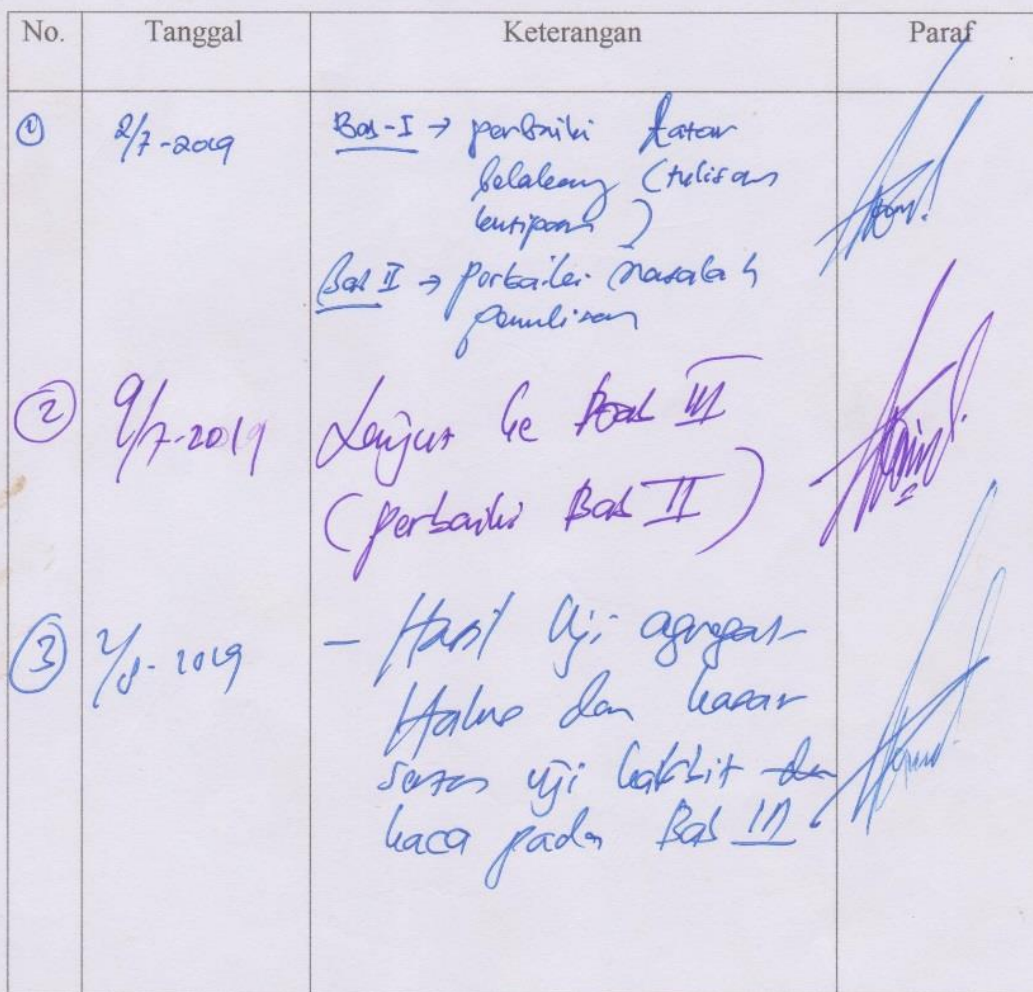 No. Tanggal Keterangan Paraf
① 2/7-2019 Bab-I → perbaiki Latar
belakang (tulisan
kutipan)
Bab II → perbaiki masalah
penulisan
② 9/7-2019 Lanjut ke Bab III
(perbaiki Bab II)
③ 2/8-2019 - Hasil Uji agregat
Halus dan kasar
uji
kaca pada Bab III